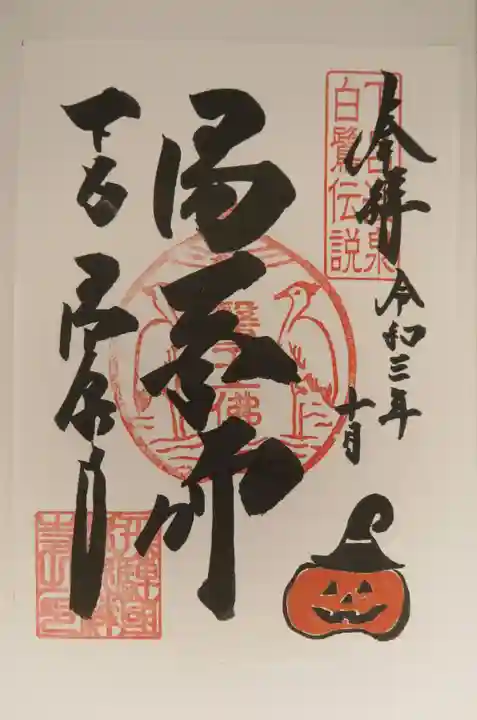 下呂温泉
白鷺伝説
奉拝
令和三年
十月
湯薬師
下呂
温泉寺